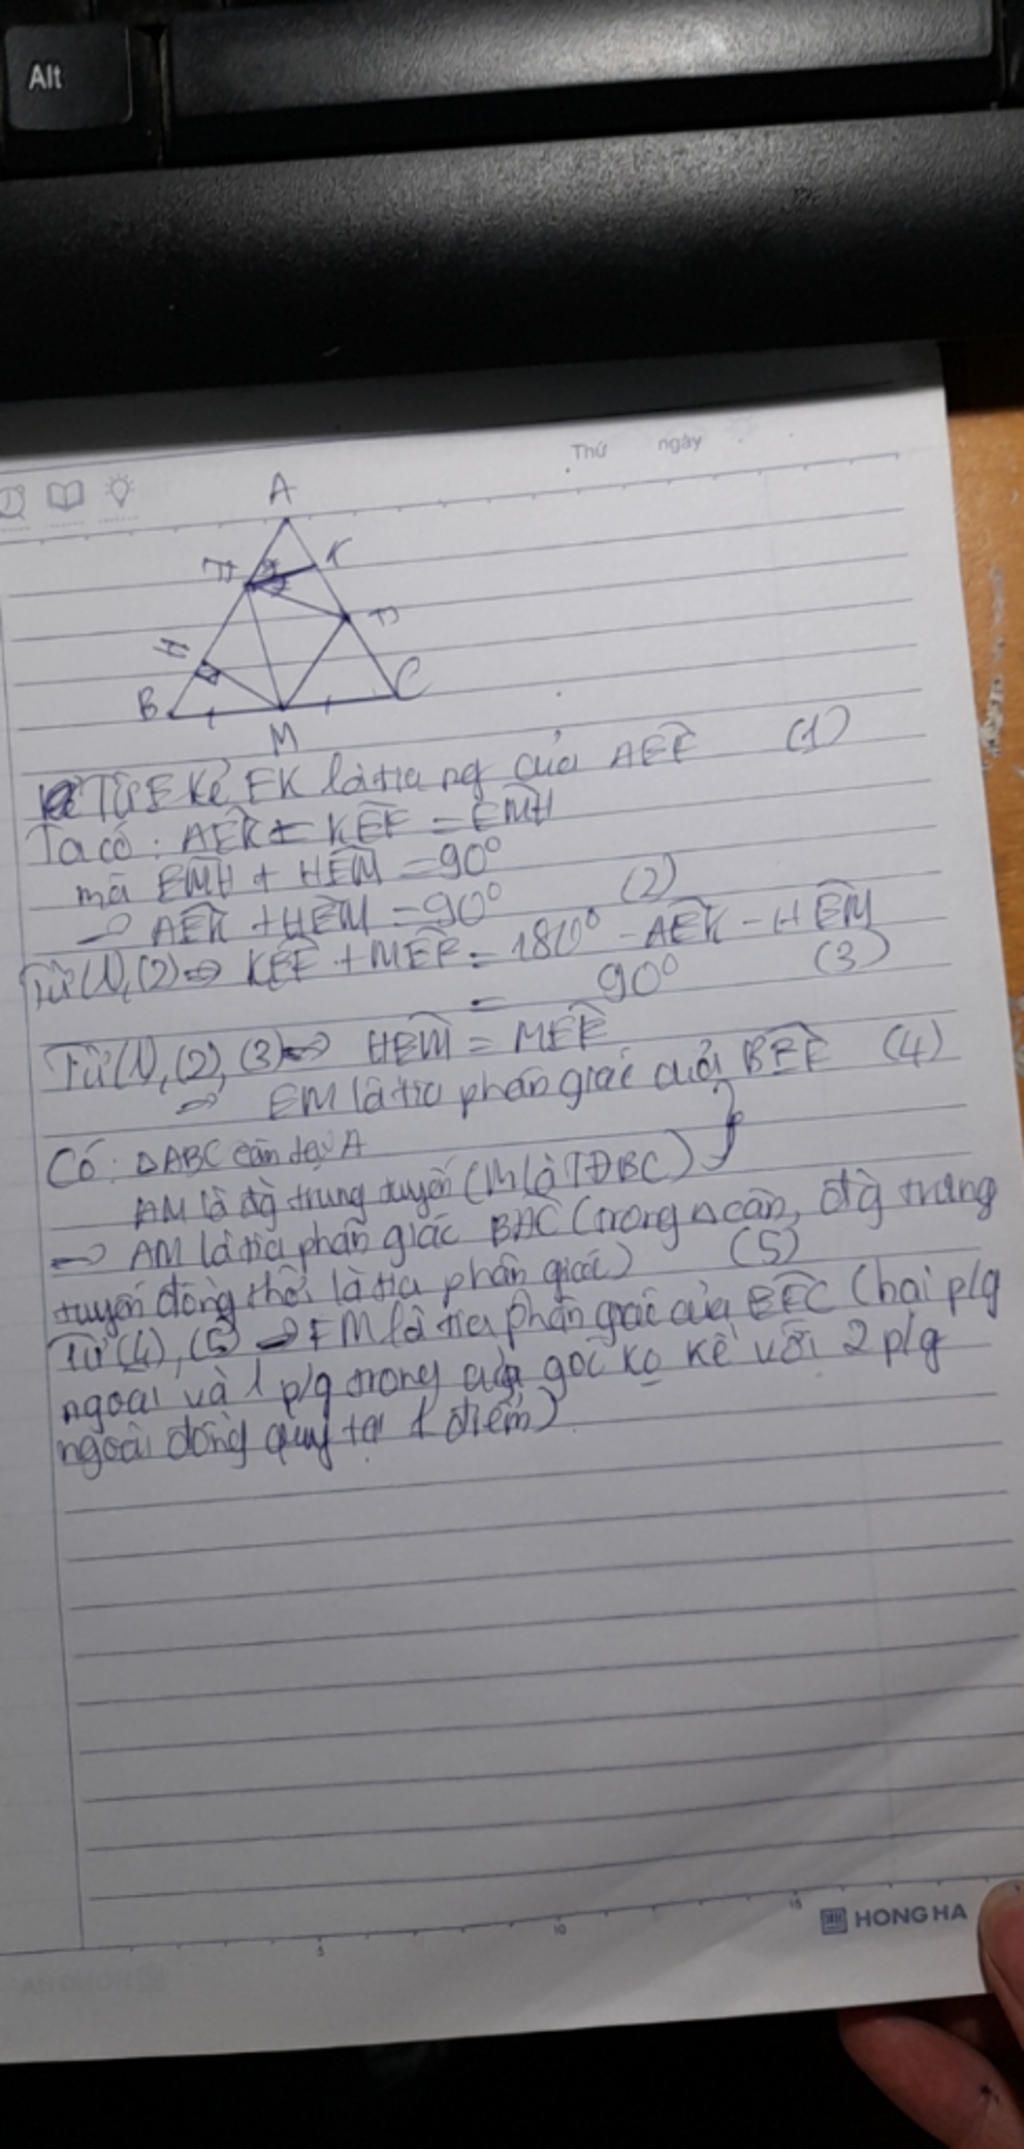 Alt
Thứ ngày
A
K
H
B
C
M
Từ E kẻ EK là tia pg của AEF (1)
Ta có: AEK + KEF = EMH
mà EMH + HEM = 90°
→ AEK + HEM = 90° (2)
Từ (1), (2) => KEF + MEF = 180° - AEK - HEM
= 90° (3)
Từ (1), (2), (3) => HEM = MEF
=> EM là tia phân giác của BEF (4)
Có: ΔABC cân tại A
AM là đg trung tuyến (M là TĐBC)
→ AM là tia phân giác BAC (trong Δ cân, đg trung
tuyến đồng thời là tia phân giác) (5)
Từ (4), (5) → FM là tia phân giác của EFC (hai p/g
ngoài và 1 p/g trong của góc ko kề với 2 p/g
ngoài đồng quy tại 1 điểm)
5 10 15
HONG HA